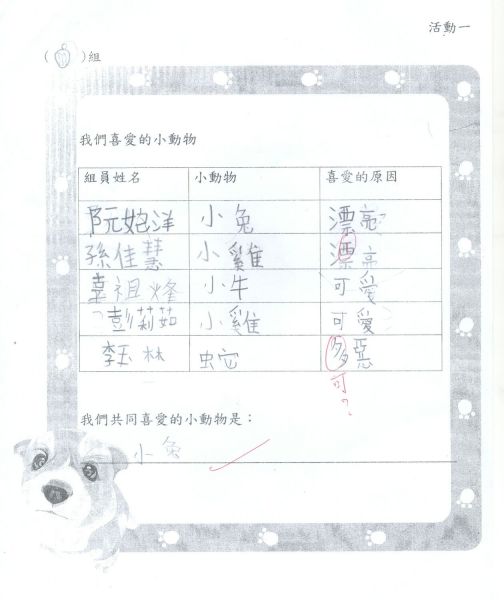 活動一
( )組
我們喜愛的小動物
組員姓名 小動物 喜愛的原因
阮姰洋 小兔 漂亮
孫佳慧 小雞 漂亮
袁祖烽 小牛 可愛
彭莉茹 小雞 可愛
李玉林 蛇 多惡
可?
我們共同喜愛的小動物是：
小兔